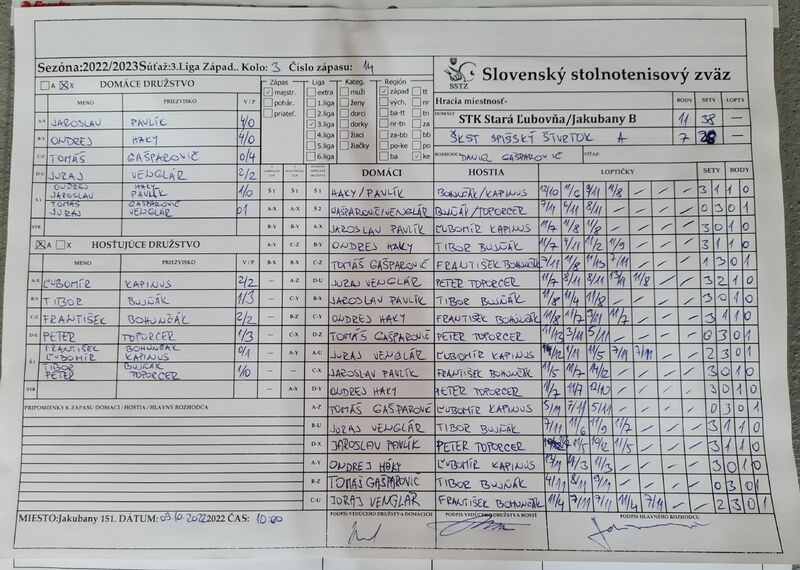 Sezóna:2022/2023 Súťaž:3.Liga Západ.. Kolo: 3 Číslo zápasu: 14
SSTZ
Slovenský stolnotenisový zväz
A X DOMÁCE DRUŽSTVO
Zápas Liga Kateg. Región
majstr. extra muži západ tt
pohár. 1.liga ženy vých. nr
priateľ. 2.liga dorci ba-tt tn
3.liga dorky nr-tn za
4.liga žiaci za-bb bb
5.liga žiačky po-ke po
6.liga ba ke
Hracia miestnosť-
DOMÁCI BODY SETY LOPTY
STK Stará Ľubovňa/Jakubany B 11 38 —
ŠKST SPIŠSKÝ ŠTVRTOK A 7 28 —
ROZHODCA DANIEL GAŠPAROVIČ VÍŤAZ:
MENO PRIEZVISKO V / P
A-X JAROSLAV PAVLÍK 4/0
B-Y ONDREJ HAKY 4/0
C-Z TOMÁŠ GAŠPAROVIČ 0/4
D-U JURAJ VENGLÁR 2/2
Š 1 ONDREJ HAKY
JAROSLAV PAVLÍK 1/0
TOMÁŠ GAŠPAROVIČ
JURAJ VENGLÁR 0/1
STR
A X HOSŤUJÚCE DRUŽSTVO
MENO PRIEZVISKO V / P
A-X ĽUBOMÍR KAPINUS 2/2
B-Y TIBOR BUJŇÁK 1/3
C-Z FRANTIŠEK BOHUNČÁK 2/2
D-U PETER TOPORCER 1/3
Š 1 FRANTIŠEK BOHUNČÁK
ĽUBOMÍR KAPINUS 0/1
TIBOR BUJŇÁK
PETER TOPORCER 1/0
STR
PRIPOMIENKY K ZÁPASU DOMÁCI / HOSTIA / HLAVNÝ ROZHODCA
DOMÁCI HOSTIA LOPTIČKY SETY BODY
Š 1 Š 1 Š 1 HAKY/PAVLÍK BOHUNČÁK/KAPINUS 12/10 11/6 9/11 11/8 — 3 1 1 0
A-X A-X Š 2 GAŠPAROVIČ/VENGLÁR BUJŇÁK/TOPORCER 7/11 6/11 8/11 — — 0 3 0 1
B-Y B-Y A-X JAROSLAV PAVLÍK ĽUBOMÍR KAPINUS 11/7 11/8 11/8 — — 3 0 1 0
A-Y C-Z B-Y ONDREJ HAKY TIBOR BUJŇÁK 11/7 4/11 11/2 11/9 — 3 1 1 0
B-X B-X C-Z TOMÁŠ GAŠPAROVIČ FRANTIŠEK BOHUNČÁK 7/11 11/8 11/13 7/11 — 1 3 0 1
— A-Z D-U JURAJ VENGLÁR PETER TOPORCER 11/7 8/11 9/11 13/11 11/8 — 3 2 1 0
— C-Y B-X JAROSLAV PAVLÍK TIBOR BUJŇÁK 11/8 11/4 11/8 — — 3 0 1 0
— B-Z C-Y ONDREJ HAKY FRANTIŠEK BOHUNČÁK 11/8 11/7 9/11 11/7 — 3 1 1 0
— C-X D-Z TOMÁŠ GAŠPAROVIČ PETER TOPORCER 11/13 3/11 5/11 — — 0 3 0 1
— A-Y A-U JURAJ VENGLÁR ĽUBOMÍR KAPINUS 4/11 11/5 7/11 7/11 — 2 3 0 1
— — C-X JAROSLAV PAVLÍK FRANTIŠEK BOHUNČÁK 11/5 11/7 11/4 — — 3 0 1 0
— A-X D-Y ONDREJ HAKY PETER TOPORCER 11/7 11/7 12/10 — — 3 0 1 0
A-Z TOMÁŠ GAŠPAROVIČ ĽUBOMÍR KAPINUS 5/11 7/11 5/11 — — 0 3 0 1
B-U JURAJ VENGLÁR TIBOR BUJŇÁK 7/11 11/6 11/9 11/7 — 3 1 1 0
D-X JAROSLAV PAVLÍK PETER TOPORCER 11/5 10/12 11/5 — 3 1 1 0
A-Y ONDREJ HÁKY ĽUBOMÍR KAPINUS 11/3 11/3 — — 3 0 1 0
B-Z TOMÁŠ GAŠPAROVIČ TIBOR BUJŇÁK 4/11 8/11 9/11 — — 0 3 0 1
C-U JURAJ VENGLÁR FRANTIŠEK BOHUNČÁK 11/4 7/11 7/11 11/4 7/11 — 2 3 0 1
MIESTO:Jakubany 151. DÁTUM: 09.10.2022 2022 ČAS: 10:00
PODPIS VEDÚCEHO DRUŽSTVA DOMÁCICH PODPIS VEDÚCEHO DRUŽSTVA HOSTÍ PODPIS HLAVNÉHO ROZHODCU